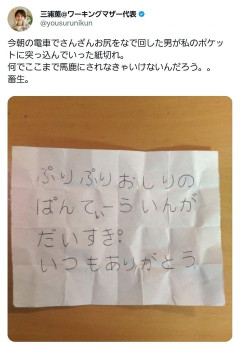 三浦薫@ワーキングマザー代表
@yousurunikun
今朝の電車でさんざんお尻をなで回した男が私のポケッ
トに突っ込んでいった紙切れ。
何でここまで馬鹿にされなきゃいけないんだろう。。
畜生。
ぷりぷりおしりの
ぱんてぃーらいんが
だいすき。
いつもありがとう